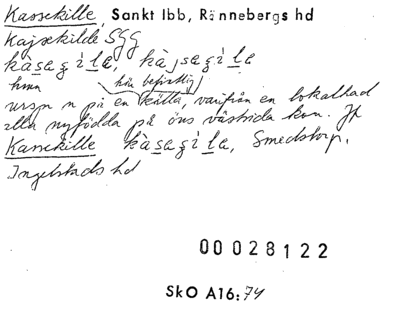 Kassekille, Sankt Ibb, Rönnebergs hd
Kajsekilde SGG
kàsagìla, kàjsagìla
hmn här befintlig
urspr n på en källa, varifrån en lokalbad
alla nyfödda på öns västsida kom. Jfr
Kassekille kàsagìla, Smedstorp,
Ingelstads hd
00028122
SkO A16:74